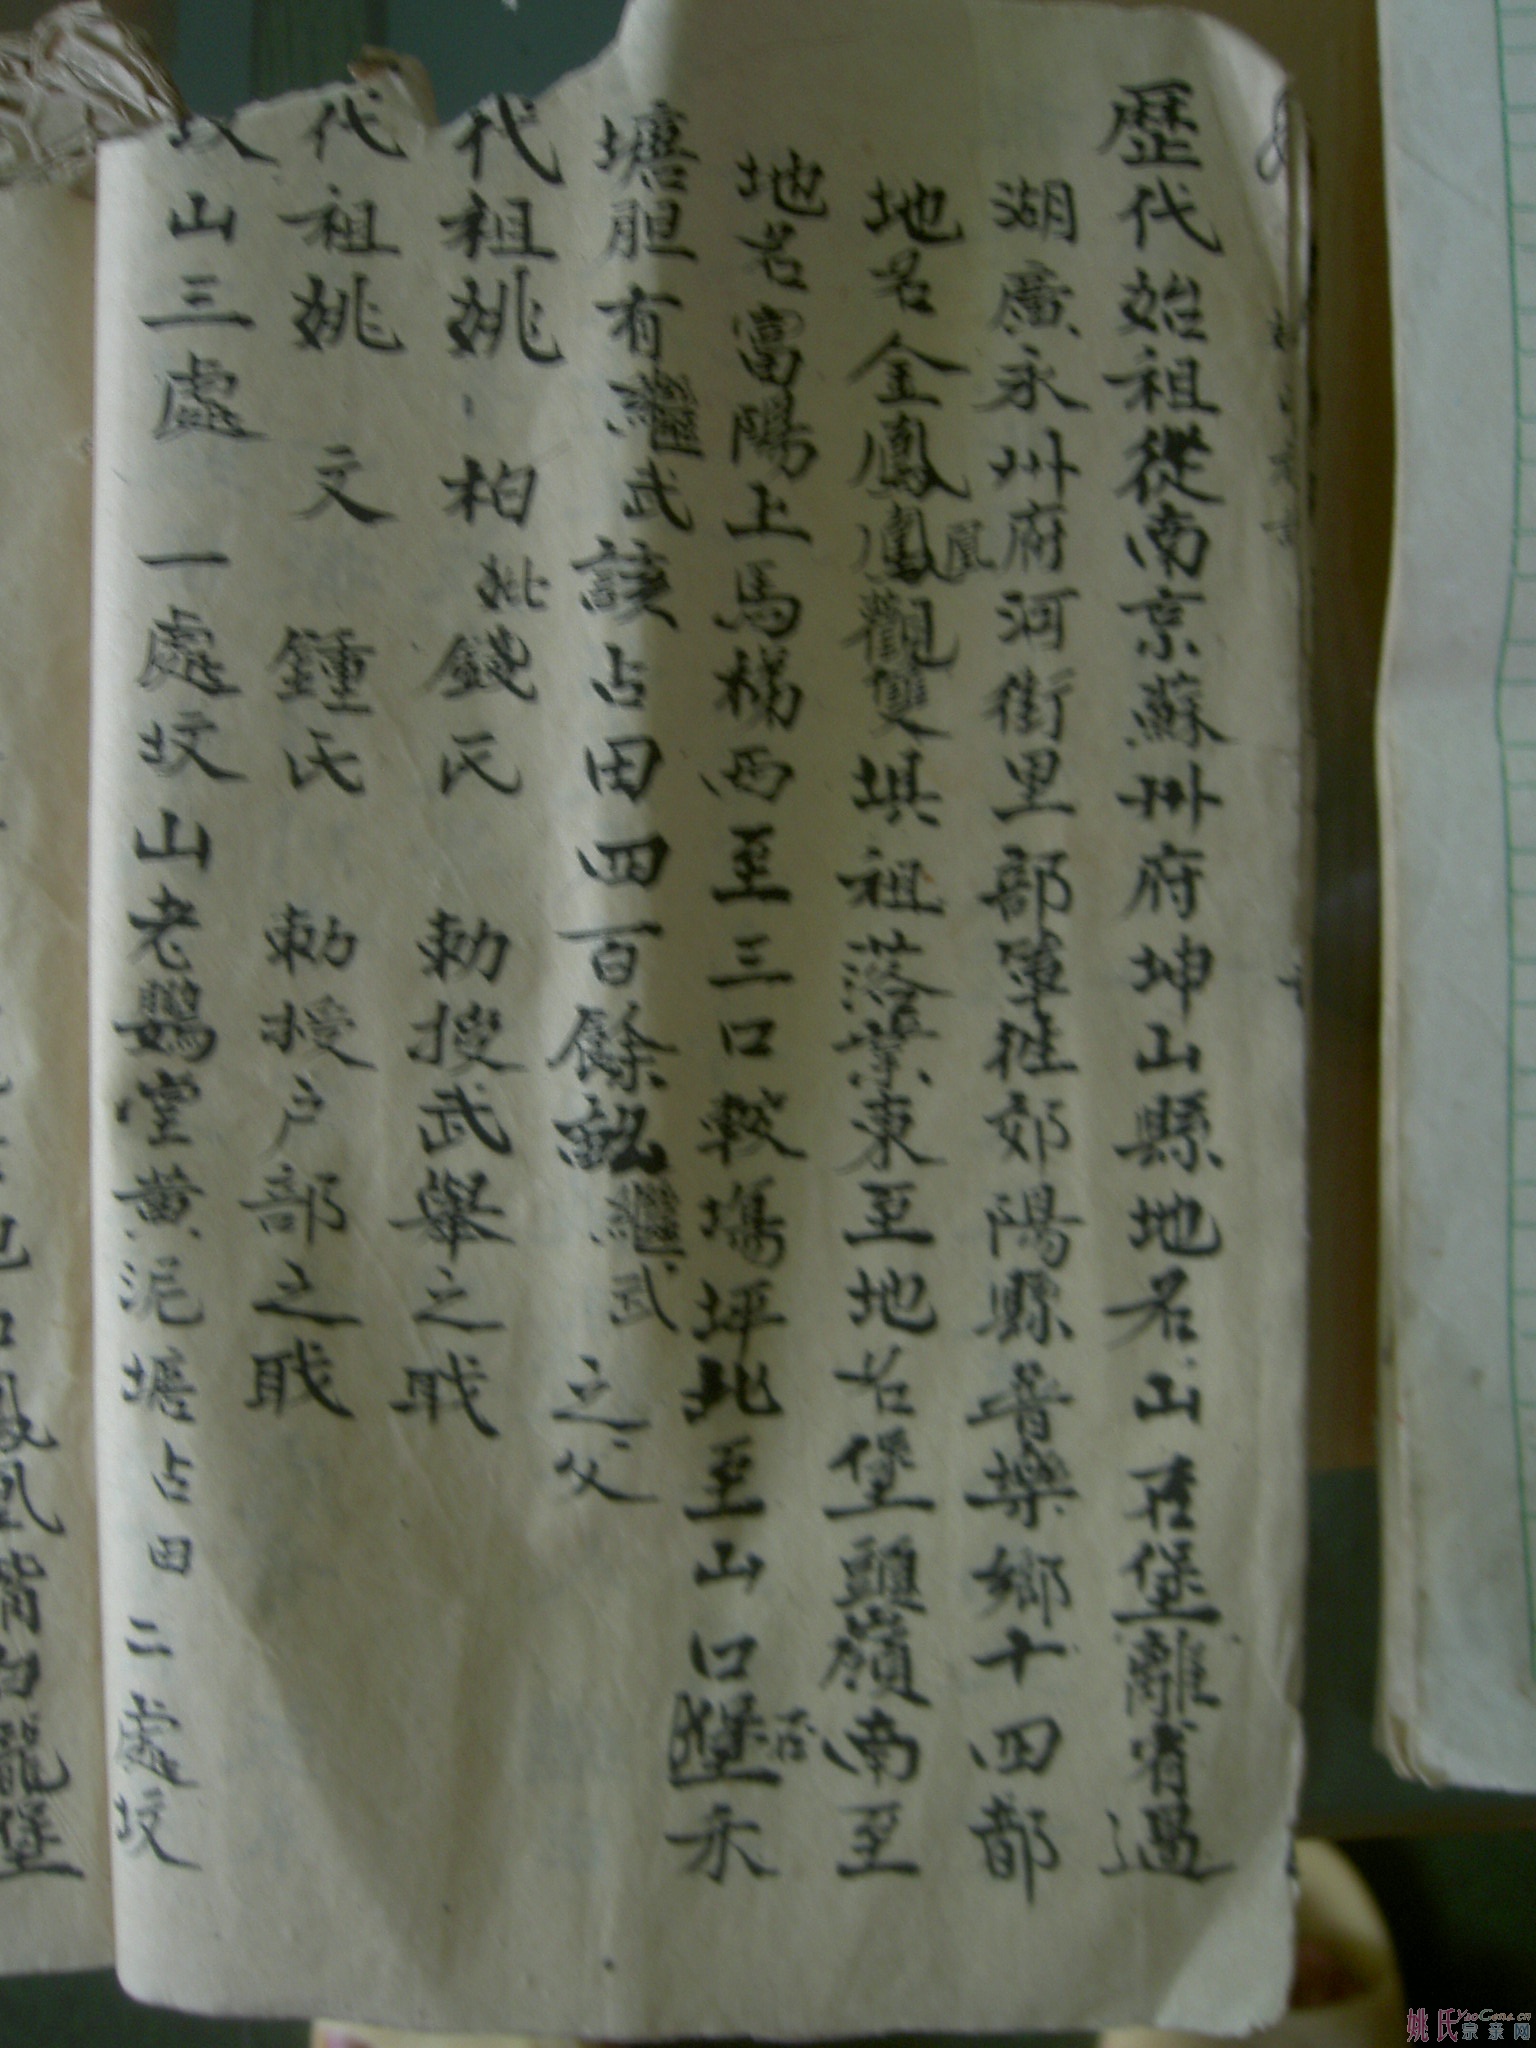 歷代始祖從南京蘇州府坤山縣地名山石堡離省過
湖廣永州府河街里部軍徃郊陽縣晋樂鄉十四都
地名金鳳鳳凰觀雙埧祖落業東至地名堡頭嶺南至
地名富陽上馬梯西至三口較塲坪北至山口堡石禾
塘胆有繼武該占田四百餘畝繼武之父
代祖姚柏妣錢氏勅授武舉之職
代祖姚文鍾氏勅授户部之職
坟山三處一處坟山老鸚堂黄泥塘占田二處坟
鳳凰背白龍堡
姚氏宗亲网
YaoGens.cn